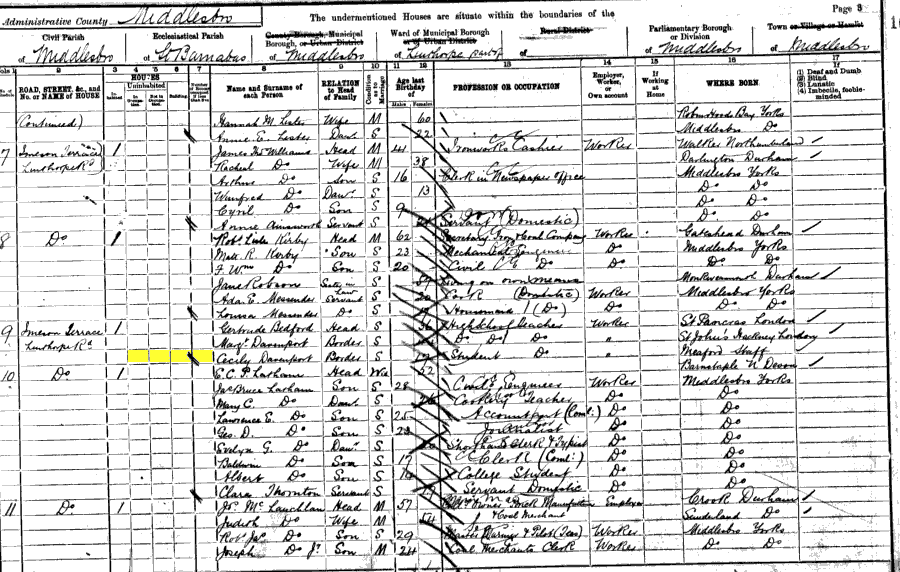 Page 3
Administrative County Middlesbro The undermentioned Houses are situate within the boundaries of the
Civil Parish Ecclesiastical Parish County Borough, Municipal Borough, or Urban District Ward of Municipal Borough or Urban District Rural District Parliamentary Borough or Division Town or Village or Hamlet
of Middlesbro of St Barnabas of Middlesbro of Linthorpe of of Middlesbro of Middlesbro
ROAD, STREET, &c., and No. or NAME of HOUSE HOUSES Uninhabited Name and Surname of each Person RELATION to Head of Family Condition as to Marriage Age last Birthday of PROFESSION OR OCCUPATION Employer, Worker, or Own account If Working at Home WHERE BORN (1) Deaf and Dumb (2) Blind (3) Lunatic (4) Imbecile, feeble-minded
Males Females
(Continued) Hannah M. Lister Wife M 60 Robin Hoods Bay Yorks
Annie E. Lister Daur S 22 Middlesbro Do
7 Imeson Terrace 1 James Thos Williams Head M 41 Ironworks Cashier Worker Walker Northumberland
Linthorpe Rd Rachael Do Wife M 38 Darlington Durham
Arthur Do Son S 16 Clerk in Newspaper office Middlesbro Yorks
Winifred Do Daur S 13 Do Do
Cyril Do Son S 9 Do Do
Annie Ainsworth Servant S Servant (Domestic) Do Do
8 Do 1 Robt Lisle Kirby Head M 62 Secretary Iron & Coal Company Worker Gateshead Durham
Matt. R. Kirby Son S 23 Mechanical Engineer Do Middlesbro Yorks
F. Wm Do Son S 20 Civil Do Do Do Do
Jane Robson S 59 Living on own means Monkwearmouth Durham
Ada. E. Messender Servant S 20 Cook (Domestic) Worker Middlesbro Yorks
Louisa Messender Do S Housemaid (Do) Do Do Do
9 Imeson Terrace 1 Gertrude Bedford Head S 36 High School Teacher Worker St Pancras London
Linthorpe Rd Mary Davenport Border S Do Do Do " St Johns Hackney London
Cecily Davenport Border S 19 Student Do " Meaford Staff
10 Do 1 E. C. P. Latham Head Wid 52 Barnstaple N Devon
Jas Bruce Latham Son S 28 Civil Engineer Worker Middlesbro Yorks
Mary C. Do Daur S 26 Cookery Teacher Do Do
Lawrence E. Do Son S 25 Accountant (Coml.) Do Do
Geo. D. Do Son S 23 Journalist Do Do
Evelyn G. Do Daur S Shorthand Clerk & Typist Do Do
Baldwin Do Son S 17 Clerk (Coml.) Do Do
Albert Do Son S College Student Do
Clara Thornton Servant S Servant Domestic Do Do
11 Do 1 Js. Mc Lauchlan Head M 57 Brick Manufacturer & Coal Merchant Employer Crook Durham
Judith Do Wife M 54 Sunderland Do
Robt Jas Do Son S 29 Master Mariner & Pilot (Tees) Worker Middlesbro Yorks
Joseph Do Jr Son M 24 Coal Merchants Clerk Worker Do Do